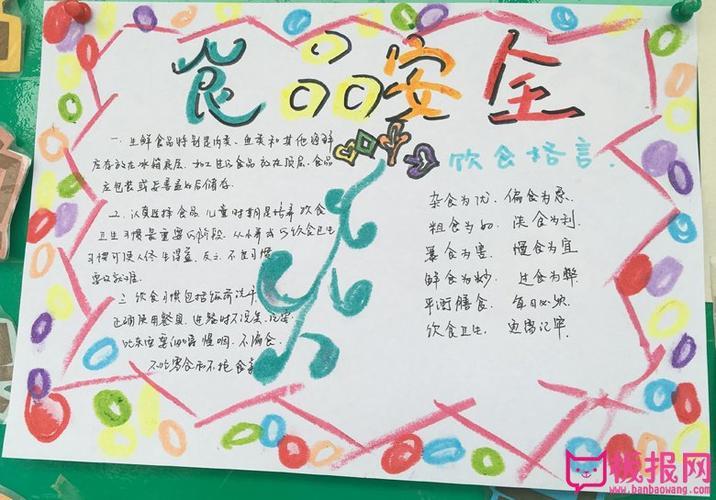 食品安全
一、生鲜食品特别是肉类、鱼类和其他海鲜
应存放在冰箱底层、和工生区食品放在顶层、食品
应包装或妥善盖好后储存.
二、认真选择食品 儿童时期是培养饮食
卫生习惯最重要的阶段、从小养成
习惯可使人终生得益、反之、不良习惯
要改就难.
三、饮食习惯包括饭前洗手
正确使用餐具、进餐时不说笑、
吃东西要细嚼慢咽、不偏食、
不吃零食和不挑食
饮食格言.
杂食为优、偏食为忌.
粗食为好、淡食为利
暴食为害、慢食为宜
鲜食为妙、过食为弊
平衡膳食、每日必须
饮食卫生、更需记牢
板报网
www.banbaowang.com